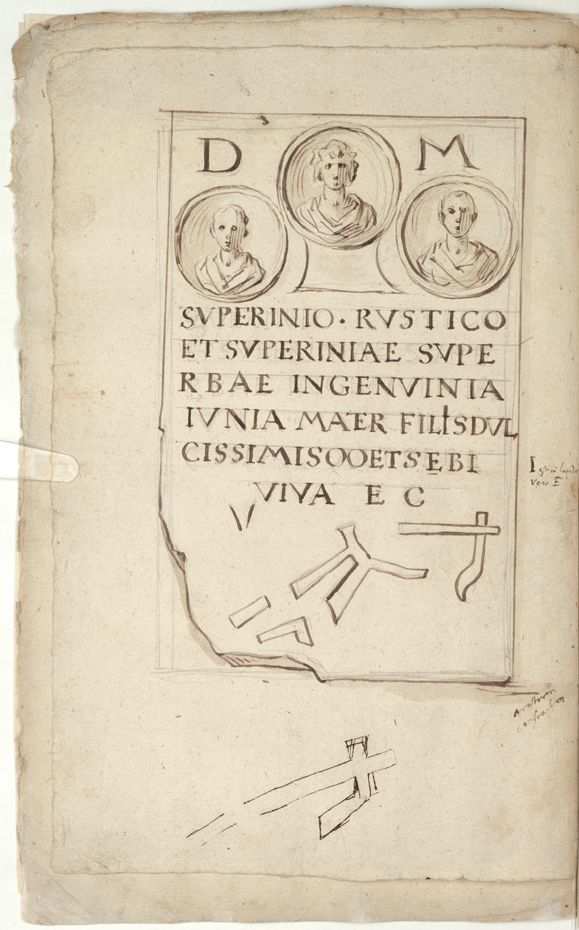 D M
SVPERINIO · RVSTICO
ET SVPERINIAE SVPE
RBAE INGENVINIA
IVNIA MATER FILIIS DVL
CISSIMISOOETSEBI
VIVA E C
I
vero E
aratrum